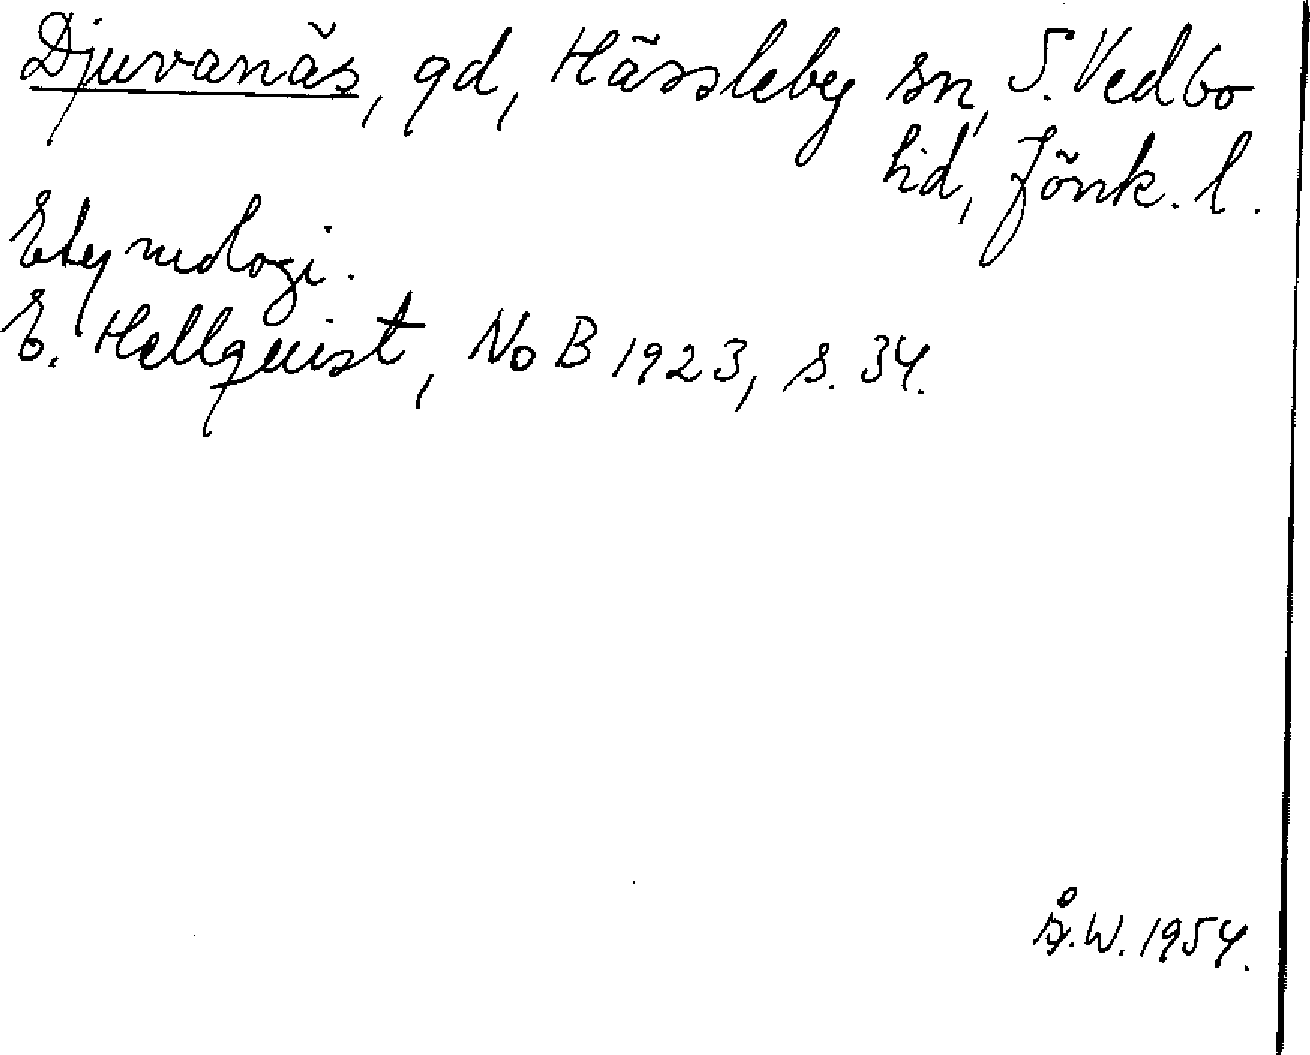 Djuvanäs, gd, Hässleby sn, S. Vedbo
hd, Jönk. l.
Etymologi.
E. Hellquist, NoB 1923, s. 34.
Å.W. 1954.